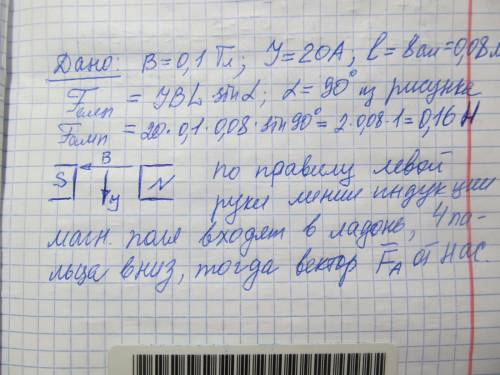 Дано: B=0,1 Тл; У=20А; l=8см=0,08м
Fамп = УBL sin L; L=90° из рисунка
Fамп = 20·0,1·0,08·sin90°=2·0,08·1=0,16 Н
B
S У N по правилу левой
руки линии индукции
магн. поля входят в ладонь, 4 па-
льца вниз, тогда вектор F̅A от нас.